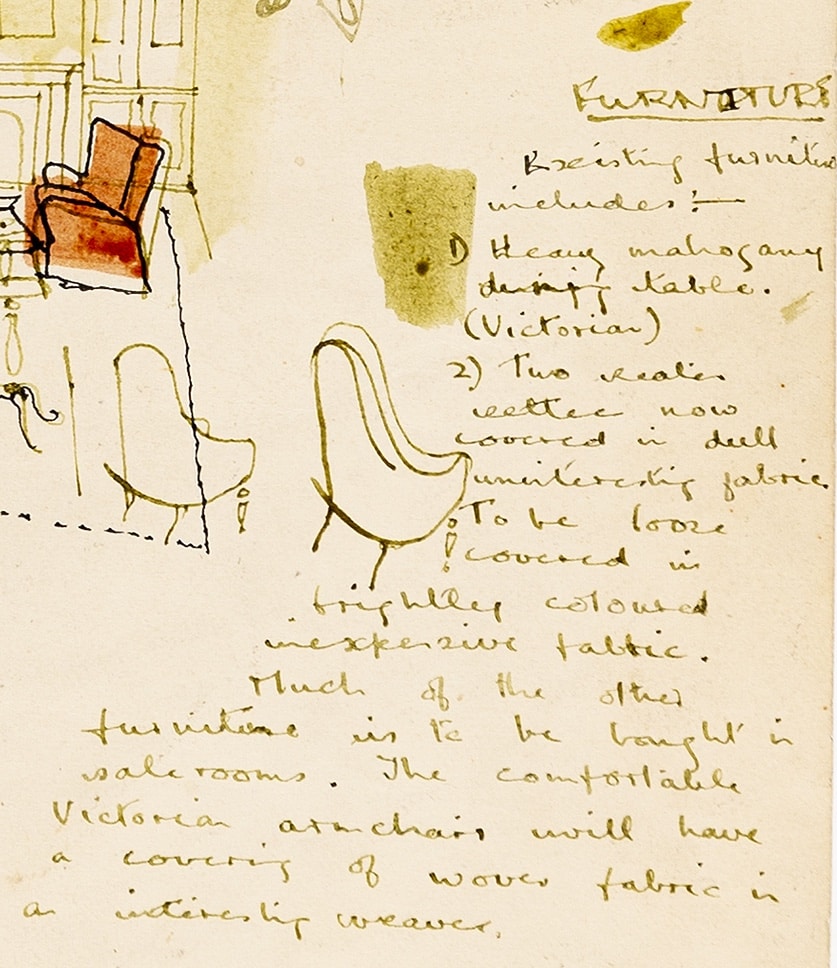 FURNITURE
Existing furniture
includes:—
1) Heavy mahogany
dining table.
(Victorian)
2) Two seater
settee now
covered in dull
uninteresting fabric.
To be loose
covered in
brightley coloured
inexpensive fabric.
Much of the other
furniture is to be bought in
sale rooms. The comfortable
Victorian armchairs will have
a covering of woven fabric in
an interesting weaves.